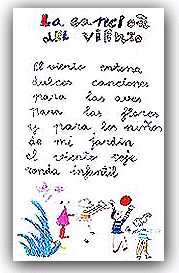 La canción
del viento
El viento entona
dulces canciones
para las aves
para las flores
y para los niños
de mi jardín
el viento teje
ronda infantil